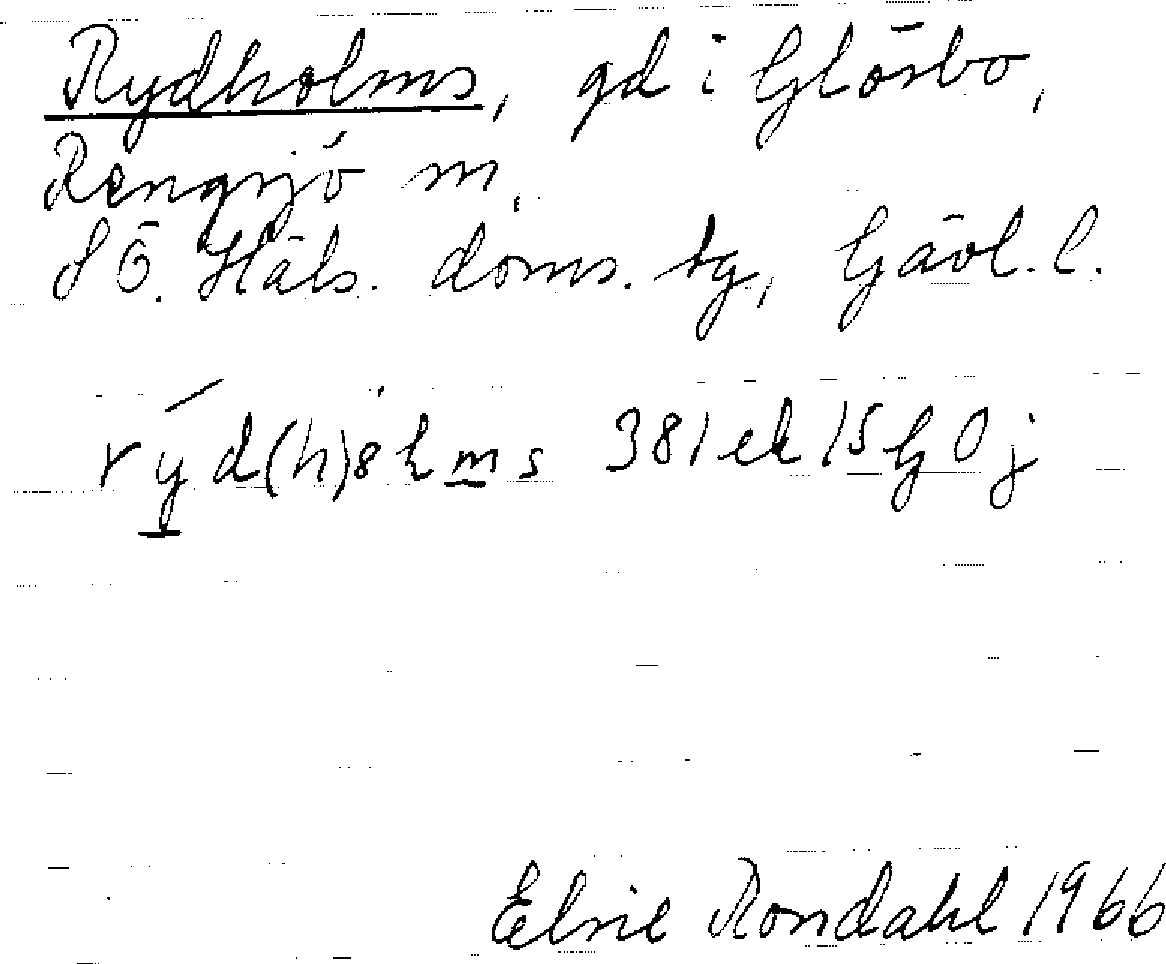 Rydholms, gd i Glösbo,
Rengsjö sn,
SÖ. Häls. doms. tg, Gävl. l.
rýd(h)
Elsie Rondahl 1966